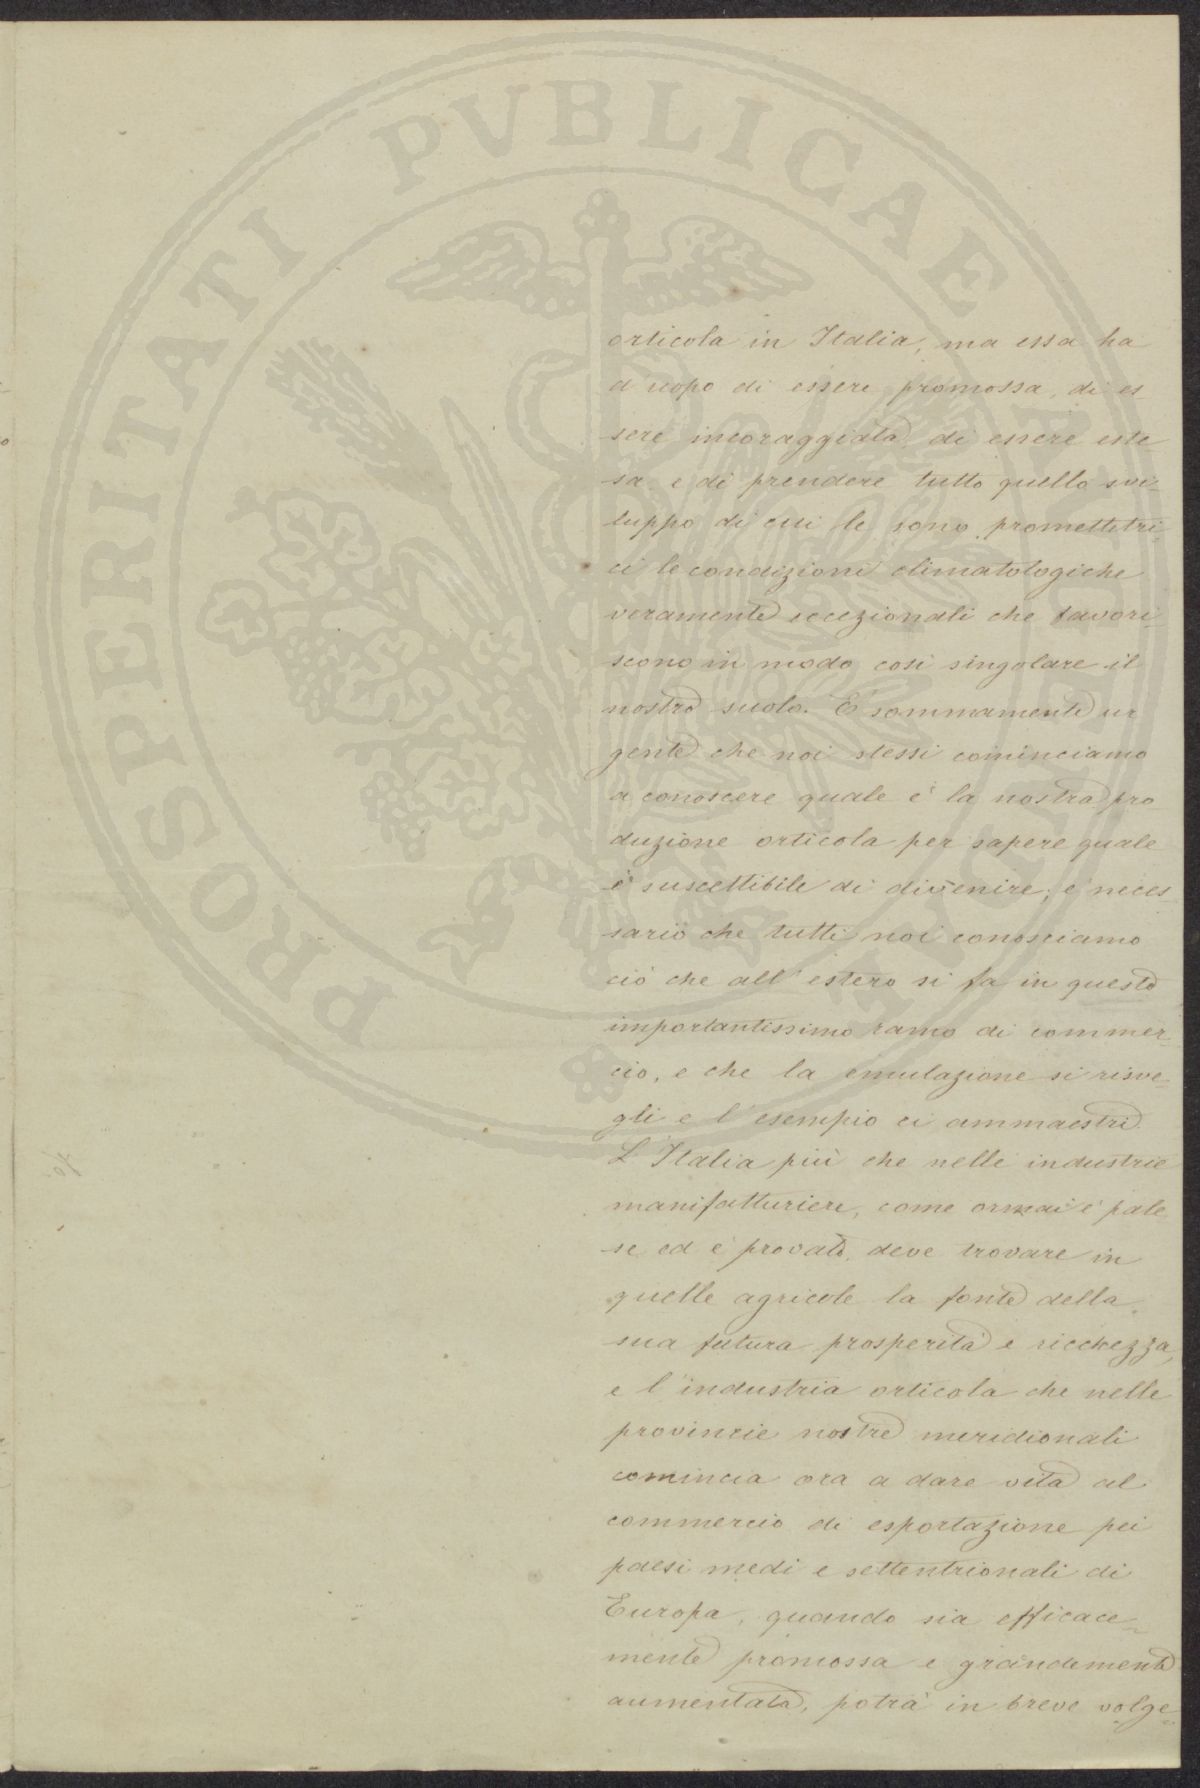 orticola in Italia, ma essa ha
d'uopo di essere promossa, di es
sere incoraggiata, di essere este-
sa e di prendere tutto quello svi-
luppo di cui le sono promettitri-
ci le condizioni climatologiche
veramente eccezionali che favori-
scono in modo così singolare il
nostro suolo. È sommamente ur
gente che noi stessi cominciamo
a conoscere quale è la nostra pro
duzione orticola per sapere quale
è suscettibile di divenire; è neces-
sario che tutti noi conosciamo
ciò che all'estero si fa in questo
importantissimo ramo di commer-
cio, e che la emulazione si risve-
gli e l'esempio ci ammaestri.
L'Italia più che nelle industrie
manifatturiere, come ormai è pale
se ed è provato, deve trovare in
quelle agricole la fonte della
sua futura prosperità e ricchezza,
e l'industria orticola che nelle
provincie nostre meridionali
comincia ora a dare vita al
commercio di esportazione pei
paesi medi e settentrionali di
Europa, quando sia efficace-
mente promossa e grandemente
aumentata, potrà in breve volge-